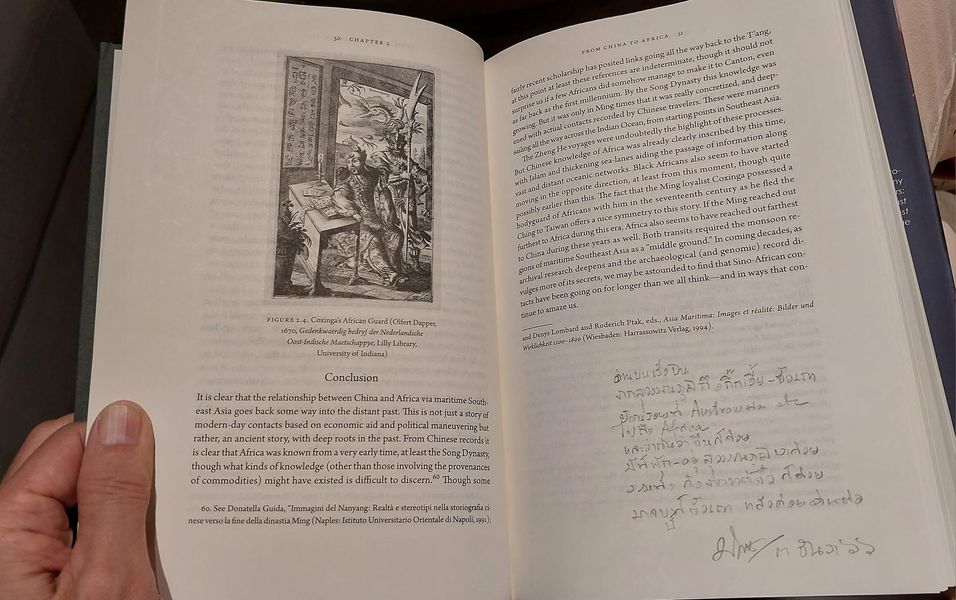 50 CHAPTER 2
FIGURE 2.4. Coxinga's African Guard (Olfert Dapper,
1670, Gedenkwaerdig bedryf der Nederlandsche
Oost-Indische Maetschappye, Lilly Library,
University of Indiana)
Conclusion
It is clear that the relationship between China and Africa via maritime South-
east Asia goes back some way into the distant past. This is not just a story of
modern-day contacts based on economic aid and political maneuvering but
rather, an ancient story, with deep roots in the past. From Chinese records it
is clear that Africa was known from a very early time, at least the Song Dynasty,
though what kinds of knowledge (other than those involving the provenances
of commodities) might have existed is difficult to discern.60 Though some
60. See Donatella Guida, "Immagini del Nanyang: Realtà e stereotipi nella storiografia ci-
nese verso la fine della dinastia Ming (Naples: Istituto Universitario Orientale di Napoli, 1991);
FROM CHINA TO AFRICA 51
fairly recent scholarship has posited links going all the way back to the T'ang,
at this point at least these references are indeterminate, though it should not
surprise us if a few Africans did somehow manage to make it to Canton, even
as far back as the first millennium. By the Song Dynasty this knowledge was
growing. But it was only in Ming times that it was really concretized, and deep-
ened with actual contacts recorded by Chinese travelers. These were mariners
sailing all the way across the Indian Ocean, from starting points in Southeast Asia.
The Zheng He voyages were undoubtedly the highlight of these processes.
But Chinese knowledge of Africa was already clearly inscribed by this time,
with Islam and thickening sea-lanes aiding the passage of information along
vast and distant oceanic networks. Black Africans also seem to have started
moving in the opposite direction, at least from this moment, though quite
possibly earlier than this. The fact that the Ming loyalist Coxinga possessed a
bodyguard of Africans with him in the seventeenth century as he fled the
Ching to Taiwan offers a nice symmetry to this story. If the Ming reached out
furthest to Africa during this era, Africa also seems to have reached out farthest
to China during these years as well. Both transits required the monsoon re-
gions of maritime Southeast Asia as a "middle ground." In coming decades, as
archival research deepens and the archaeological (and genomic) record di-
vulges more of its secrets, we may be astounded to find that Sino-African con-
tacts have been going on for longer than we all think—and in ways that con-
tinue to amaze us.
and Denys Lombard and Roderich Ptak, eds., Asia Maritima: Images et réalité: Bilder und
Wirklichkeit 1200–1800 (Wiesbaden: Harrassowitz Verlag, 1994).
อ่านบนเรือบิน
จากสุวรรณภูมิถึง
etc
ไปถึง Africa